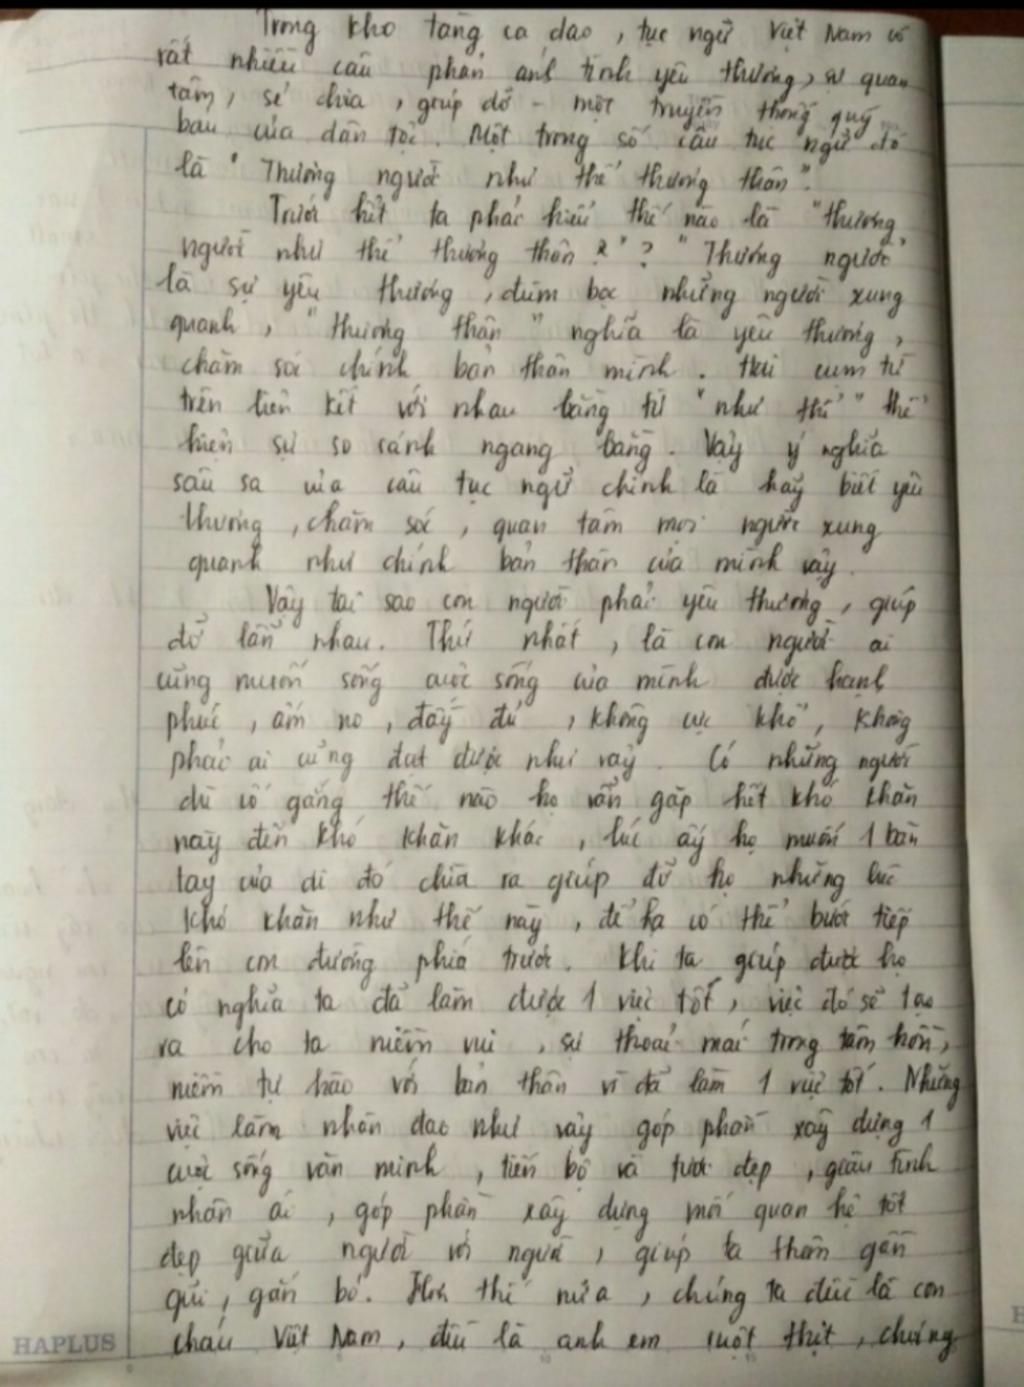 Trong kho tàng ca dao, tục ngữ Việt Nam có
rất nhiều câu phản ánh tình yêu thương, sự quan
tâm, sẻ chia, giúp đỡ - một truyền thống quý
báu của dân tộc. Một trong số câu tục ngữ đó
là " Thương người như thể thương thân".
Trước hết ta phải hiểu thế nào là "thương
người như thể thương thân"? "Thương người"
là sự yêu thương, đùm bọc những người xung
quanh, "thương thân" nghĩa là yêu thương,
chăm sóc chính bản thân mình. Hai cụm từ
trên liên kết với nhau bằng từ "như thể" thể
hiện sự so sánh ngang bằng. Vậy ý nghĩa
sâu sa của câu tục ngữ chính là hãy biết yêu
thương, chăm sóc, quan tâm mọi người xung
quanh như chính bản thân của mình vậy.
Vậy tại sao con người phải yêu thương, giúp
đỡ lẫn nhau. Thứ nhất, là con người ai
cũng muốn sống cuộc sống của mình được hạnh
phúc, ấm no, đầy đủ, không cực khổ, không
phải ai cũng đạt được như vậy. Có những người
dù cố gắng thế nào họ vẫn gặp hết khó khăn
này đến khó khăn khác, lúc ấy họ muốn 1 bàn
tay của di đó chìa ra giúp đỡ họ những lúc
khó khăn như thế này, để họ có thể bước tiếp
lên con đường phía trước. Khi ta giúp được họ
có nghĩa ta đã làm được 1 việc tốt, việc đó sẽ tạo
ra cho ta niềm vui, sự thoải mái trong tâm hồn,
niềm tự hào với bản thân vì đã làm 1 việc tốt. Những
việc làm nhân đạo như vậy góp phần xây dựng 1
cuộc sống văn minh, tiến bộ và tươi đẹp, giàu tình
nhân ái, góp phần xây dựng mối quan hệ tốt
đẹp giữa người với người, giúp ta thân gần
gũi, gắn bó. Hơn thế nữa, chúng ta đều là con
cháu Việt Nam, đều là anh em ruột thịt, chúng
HAPLUS